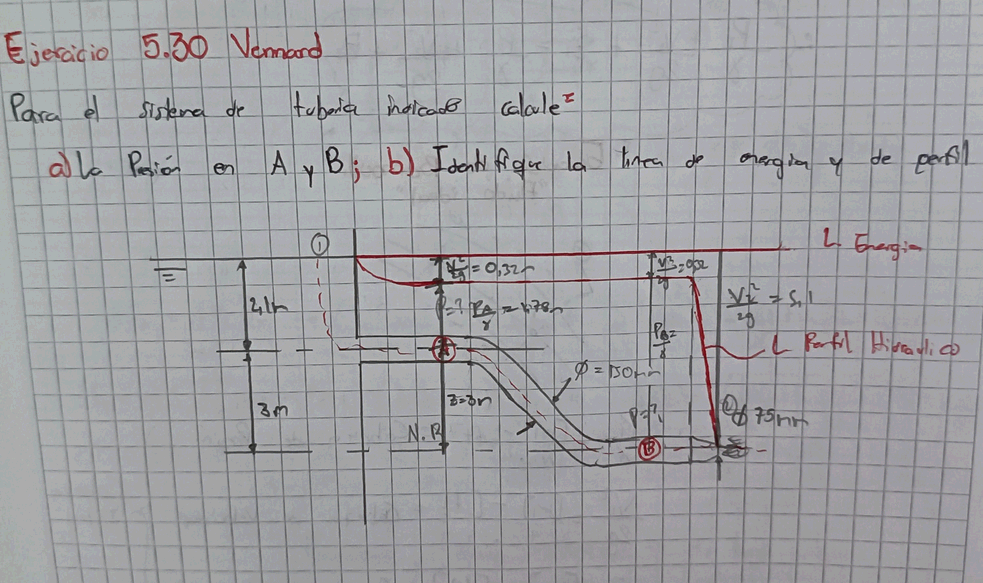 Ejercicio 5.30 Vennard
Para el sistema de tubería indicado calcule:
a) La Presión en A y B; b) Identifique la línea de energía y de perfil
①
L Energia
V²/2g = 0,32m
V²/2g = 0,32
2,1m
P=? PA/γ = 1,78m
V₂²/2g = 5,1
PB/γ =
L Perfil Hidraulico
A
Ø = 150mm
3m
z=3m
P=?
② Ø 75mm
N.R
B